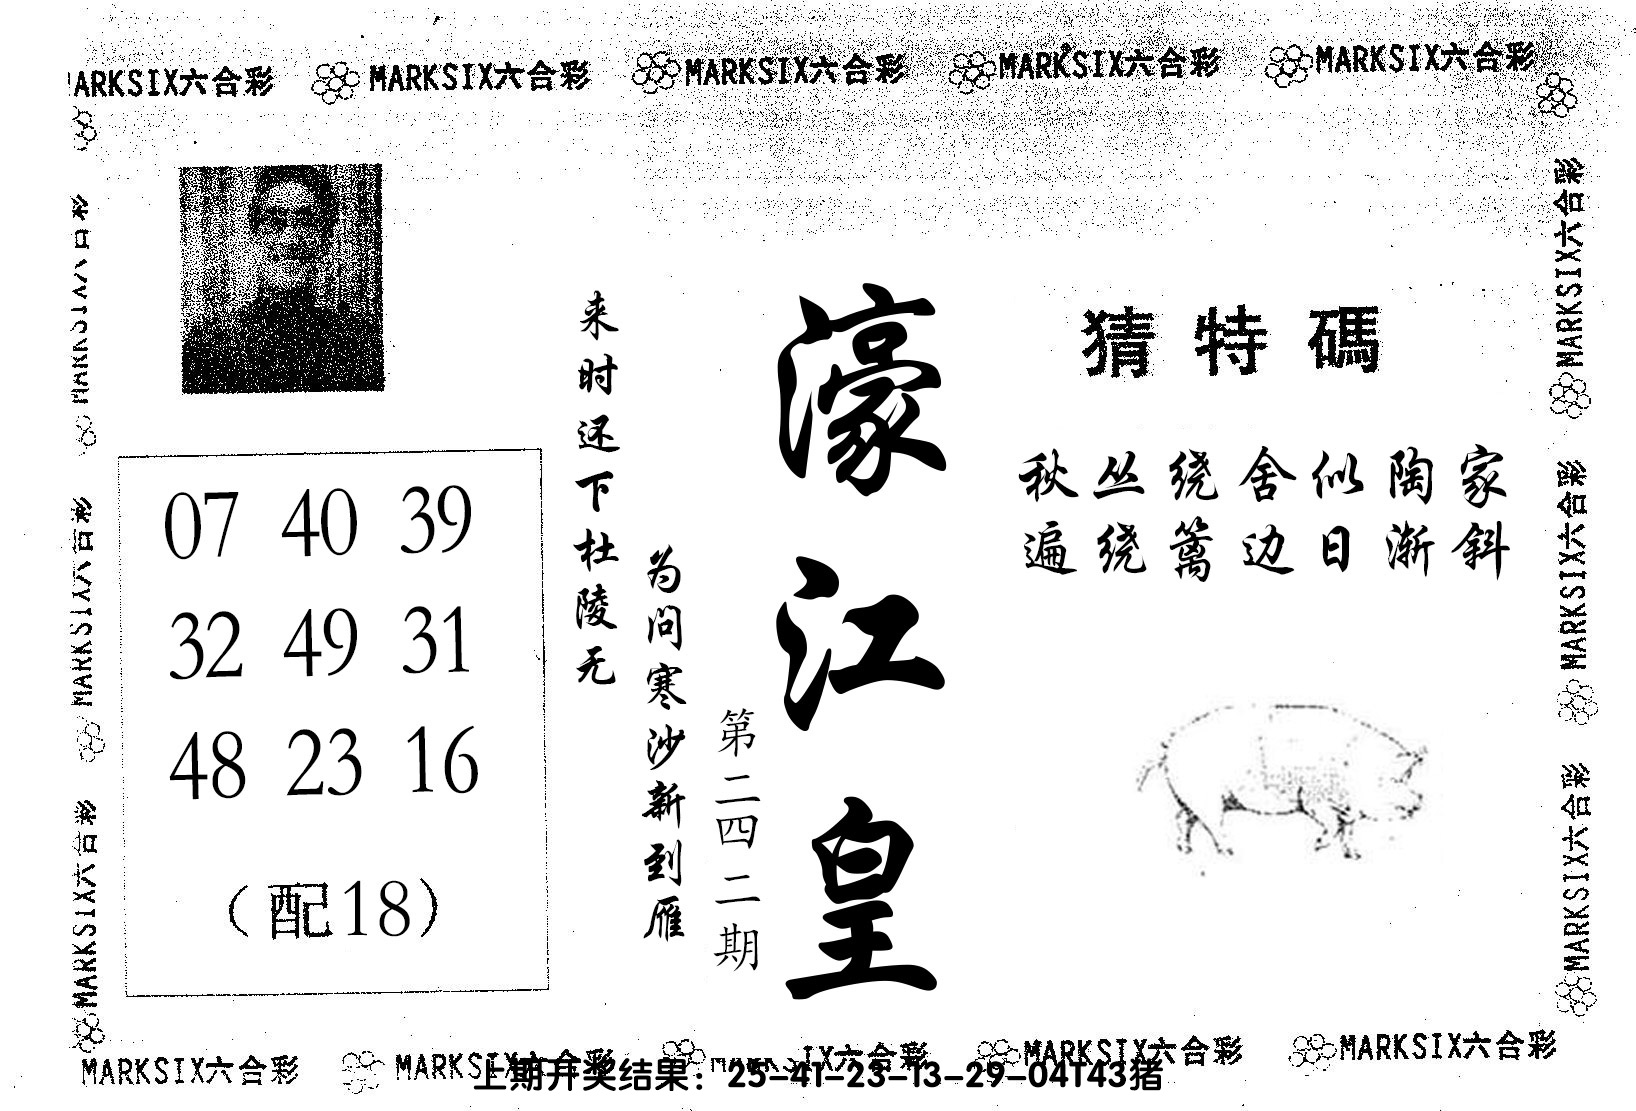 MARKSIX六合彩 MARKSIX六合彩 MARKSIX六合彩 MARKSIX六合彩 MARKSIX六合彩
猜特碼
秋丛绕舍似陶家
遍绕篱边日渐斜
濠江皇
第二四二期
为问寒沙新到雁
来时还下杜陵无
07 40 39
32 49 31
48 23 16
（配18）
MARKSIX六合彩
MARKSIX六合彩
MARKSIX六合彩
MARKSIX六合彩
MARKSIX六合彩
MARKSIX六合彩
MARKSIX六合彩 MARKSIX六合彩 MARKSIX六合彩 MARKSIX六合彩 MARKSIX六合彩
上期开奖结果：25-41-23-13-29-04T43猪